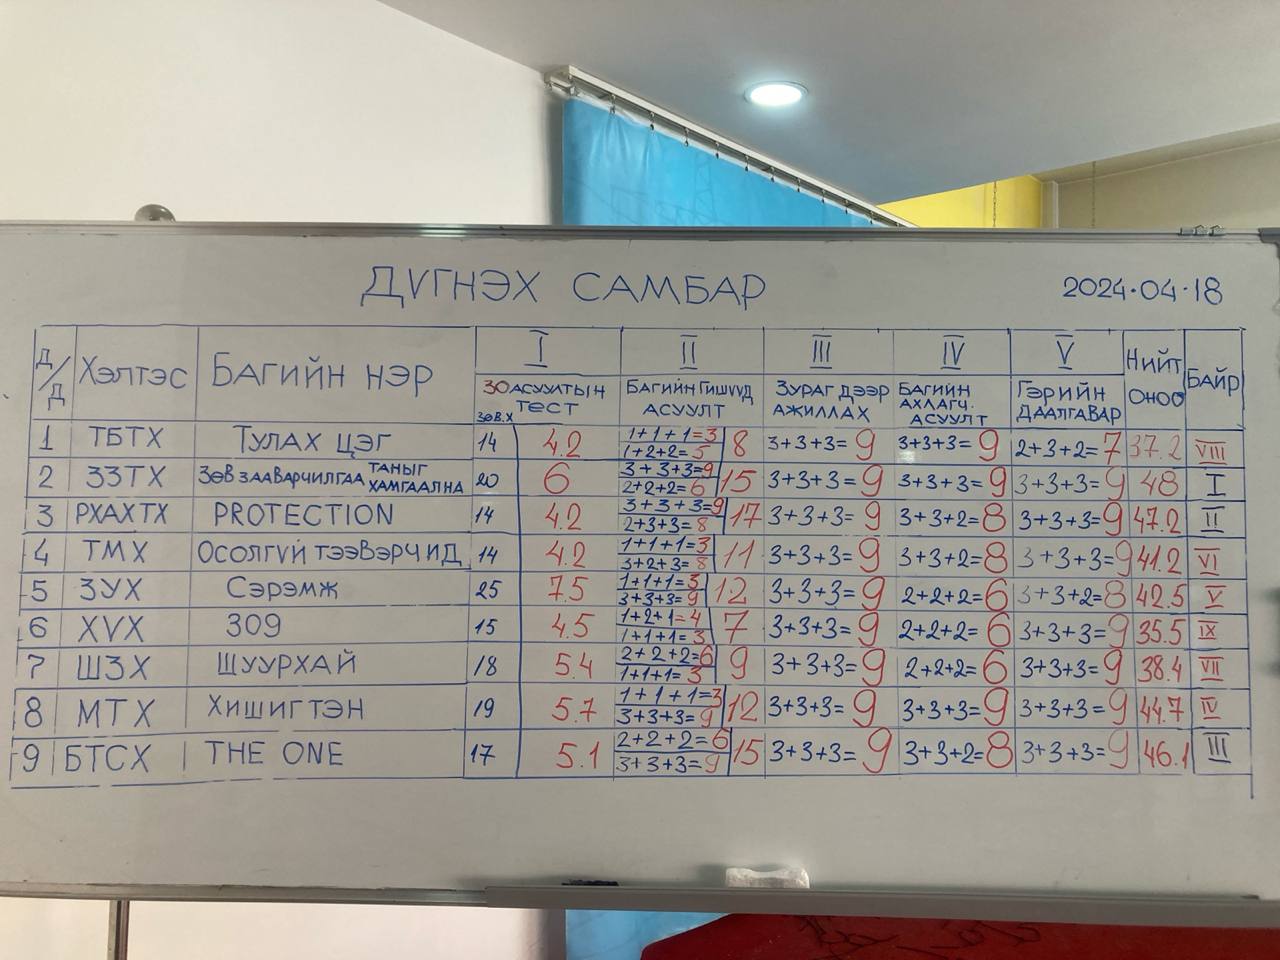 ДҮГНЭХ САМБАР 2024.04.18
Д/Д ХЭЛТЭС БАГИЙН НЭР I II III IV V НИЙТ ОНОО БАЙР
30 АСУУЛТЫН ТЕСТ БАГИЙН ГИШҮҮД АСУУЛТ ЗУРАГ ДЭЭР АЖИЛЛАХ БАГИЙН АХЛАГЧ. АСУУЛТ ГЭРИЙН ДААЛГАВАР
ЗӨВ.Х
1 ТБТХ ТУЛАХ ЦЭГ 14 4.2 1+1+1=3 1+2+2=5 8 3+3+3=9 3+3+3=9 2+3+2=7 37.2 VIII
2 ЗЗТХ ЗӨВ ЗААВАРЧИЛГАА ТАНЫГ ХАМГААЛНА 20 6 3+3+3=9 2+2+2=6 15 3+3+3=9 3+3+3=9 3+3+3=9 48 I
3 РХАХТХ PROTECTION 14 4.2 3+3+3=9 2+3+3=8 17 3+3+3=9 3+3+2=8 3+3+3=9 47.2 II
4 ТМХ ОСОЛГҮЙ ТЭЭВЭРЧИД 14 4.2 1+1+1=3 3+2+3=8 11 3+3+3=9 3+3+2=8 3+3+3=9 41.2 VI
5 ЗУХ СЭРЭМЖ 25 7.5 1+1+1=3 3+3+3=9 12 3+3+3=9 2+2+2=6 3+3+2=8 42.5 V
6 ХҮХ 309 15 4.5 1+2+1=4 1+1+1=3 7 3+3+3=9 2+2+2=6 3+3+3=9 35.5 IX
7 ШЗХ ШУУРХАЙ 18 5.4 2+2+2=6 1+1+1=3 9 3+3+3=9 2+2+2=6 3+3+3=9 38.4 VII
8 МТХ ХИШИГТЭН 19 5.7 1+1+1=3 3+3+3=9 12 3+3+3=9 3+3+3=9 3+3+3=9 44.7 IV
9 БТСХ THE ONE 17 5.1 2+2+2=6 3+3+3=9 15 3+3+3=9 3+3+2=8 3+3+3=9 46.1 III